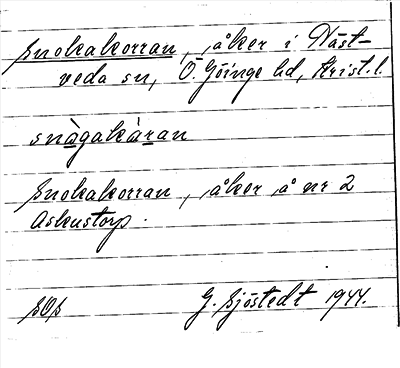 Snokakorran, åker i Näst-
veda sn, Ö. Göinge hd, Krist. l.
snàgakàran
Snokakorran, åker å nr 2
Askustorp.
G. Sjöstedt 1944.